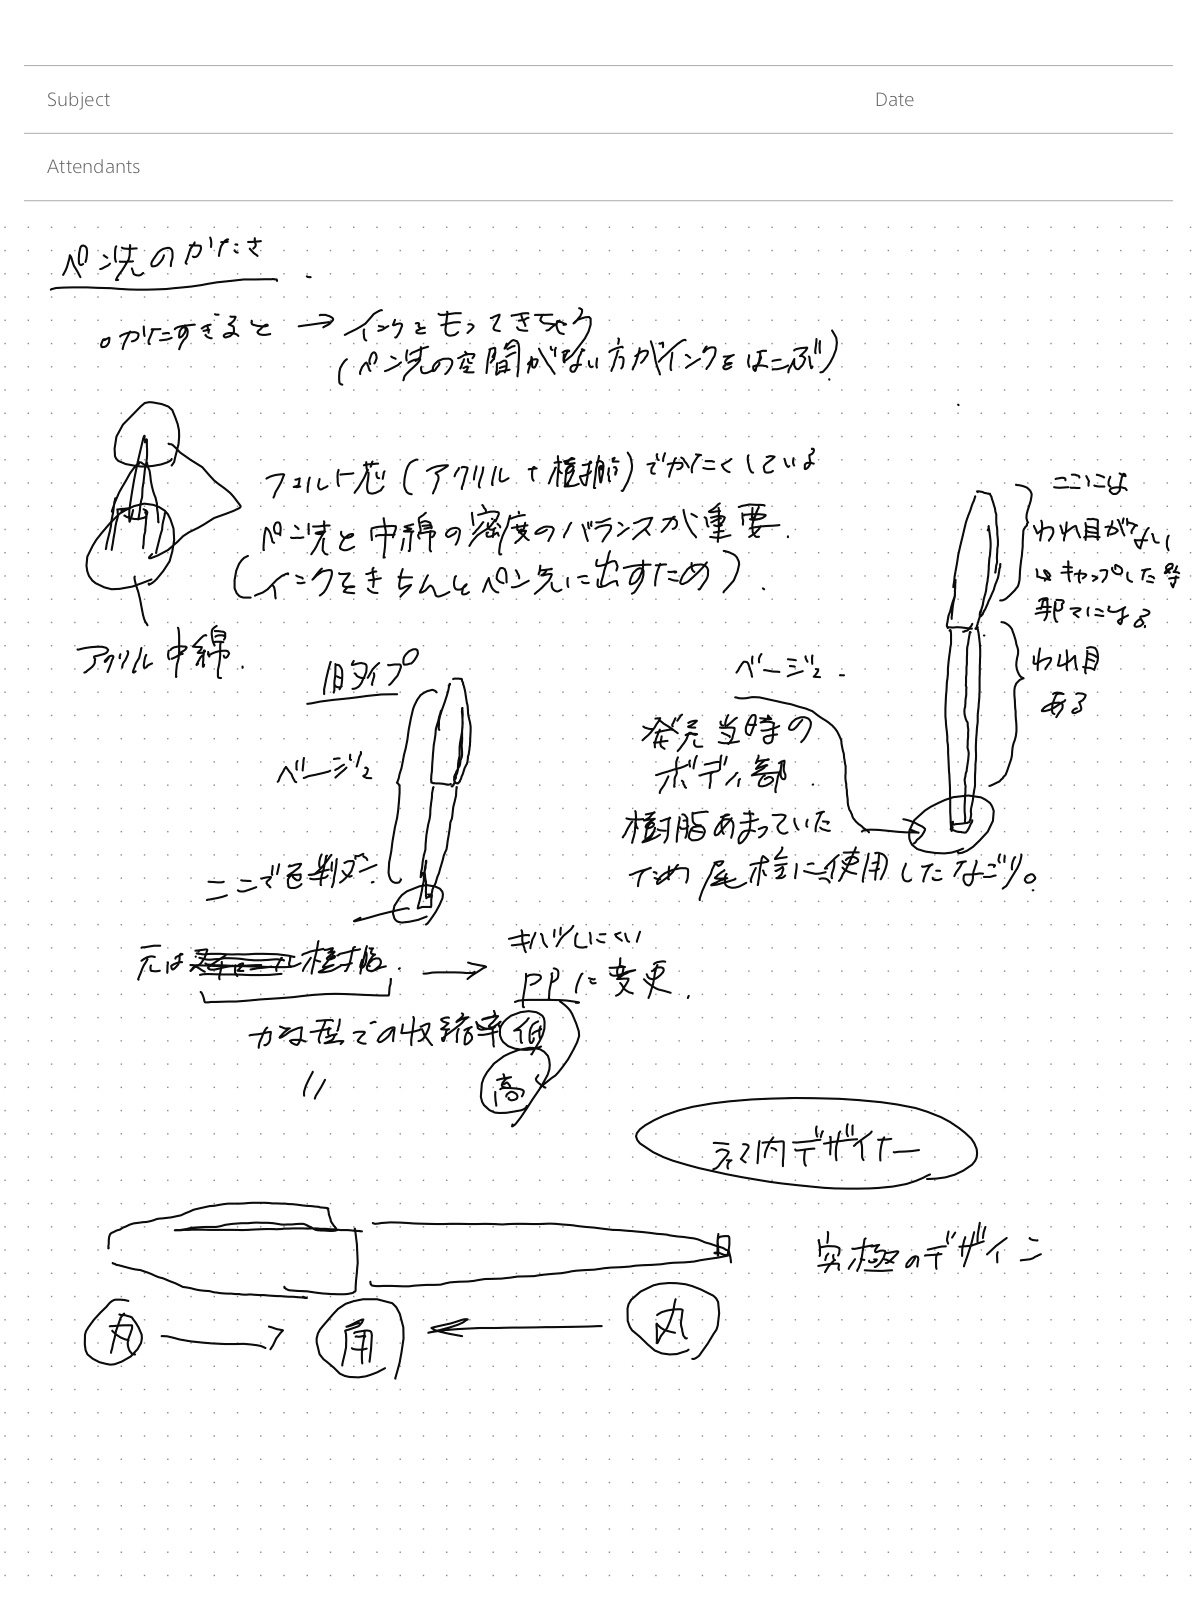 Subject
Date
Attendants
ペン先のかたさ
かたすぎると → インクをもってきちゃう
(ペン先の空間がない方がインクをはこぶ)
フェルト芯(アクリル+樹脂)でかたくしている
ペン先と中綿の密度のバランスが重要.
(インクをきちんとペン先に出すため).
アクリル中綿.
ここには
われ目がない
キャップした
われ目
ある
旧タイプ
ベージュ
ここで色判ダン.
ベージュ
発売当時の
ボディ部.
樹脂あまっていた
ため尾栓に使用したなごり。
元は 樹脂. →
キハツしにくい
PPに変更.
かな型での収縮率低
〃 高
社内デザイナー
究極のデザイン
丸 → 角 ← 丸